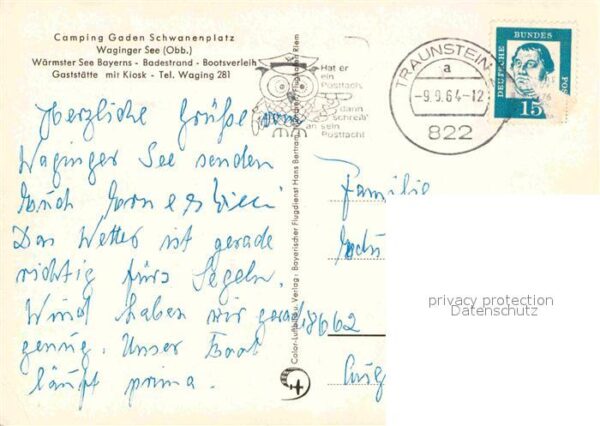 Camping Gaden Schwanenplatz
Waginger See (Obb.)
Wärmster See Bayerns - Badestrand - Bootsverleih
Gaststätte mit Kiosk - Tel. Waging 281
Hat er
ein
Postfach,
dann
schreib
an sein
Postfach!
TRAUNSTEIN
a
-9.9.64-12
822
DEUTSCHE BUNDESPOST
15
Herzliche Grüße vom
Waginger See senden
Euch
Das Wetter ist gerade
richtig fürs Segeln.
Wind haben wir gerade
genug. Unser Boot
läuft prima.
Color-Luftbild u. Verlag: Bayerischer Flugdienst Hans Bertram, Flughafen Riem
Familie
privacy protection
Datenschutz